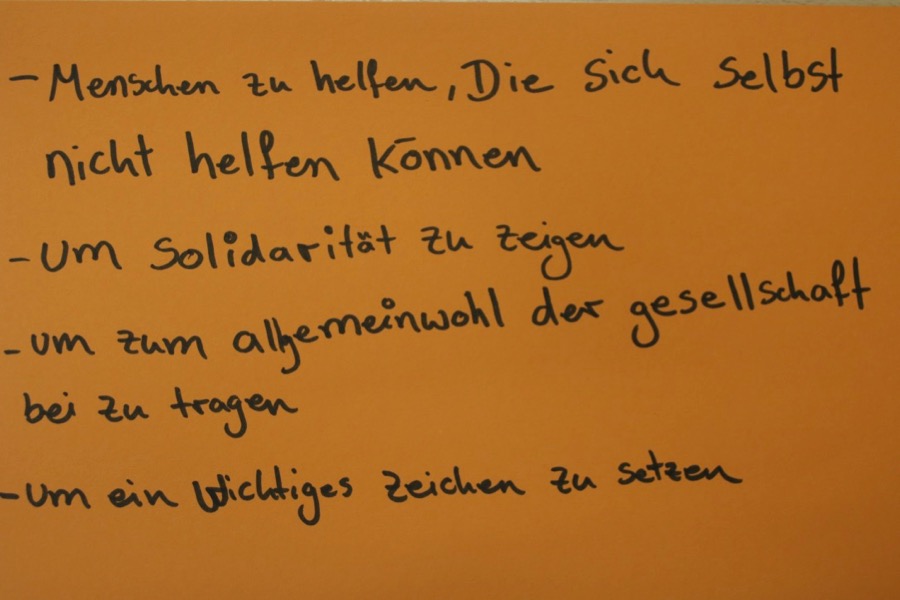 - Menschen zu helfen, Die sich selbst
nicht helfen können
- um Solidarität zu zeigen
- um zum allgemeinwohl der gesellschaft
bei zu tragen
- um ein wichtiges zeichen zu setzen